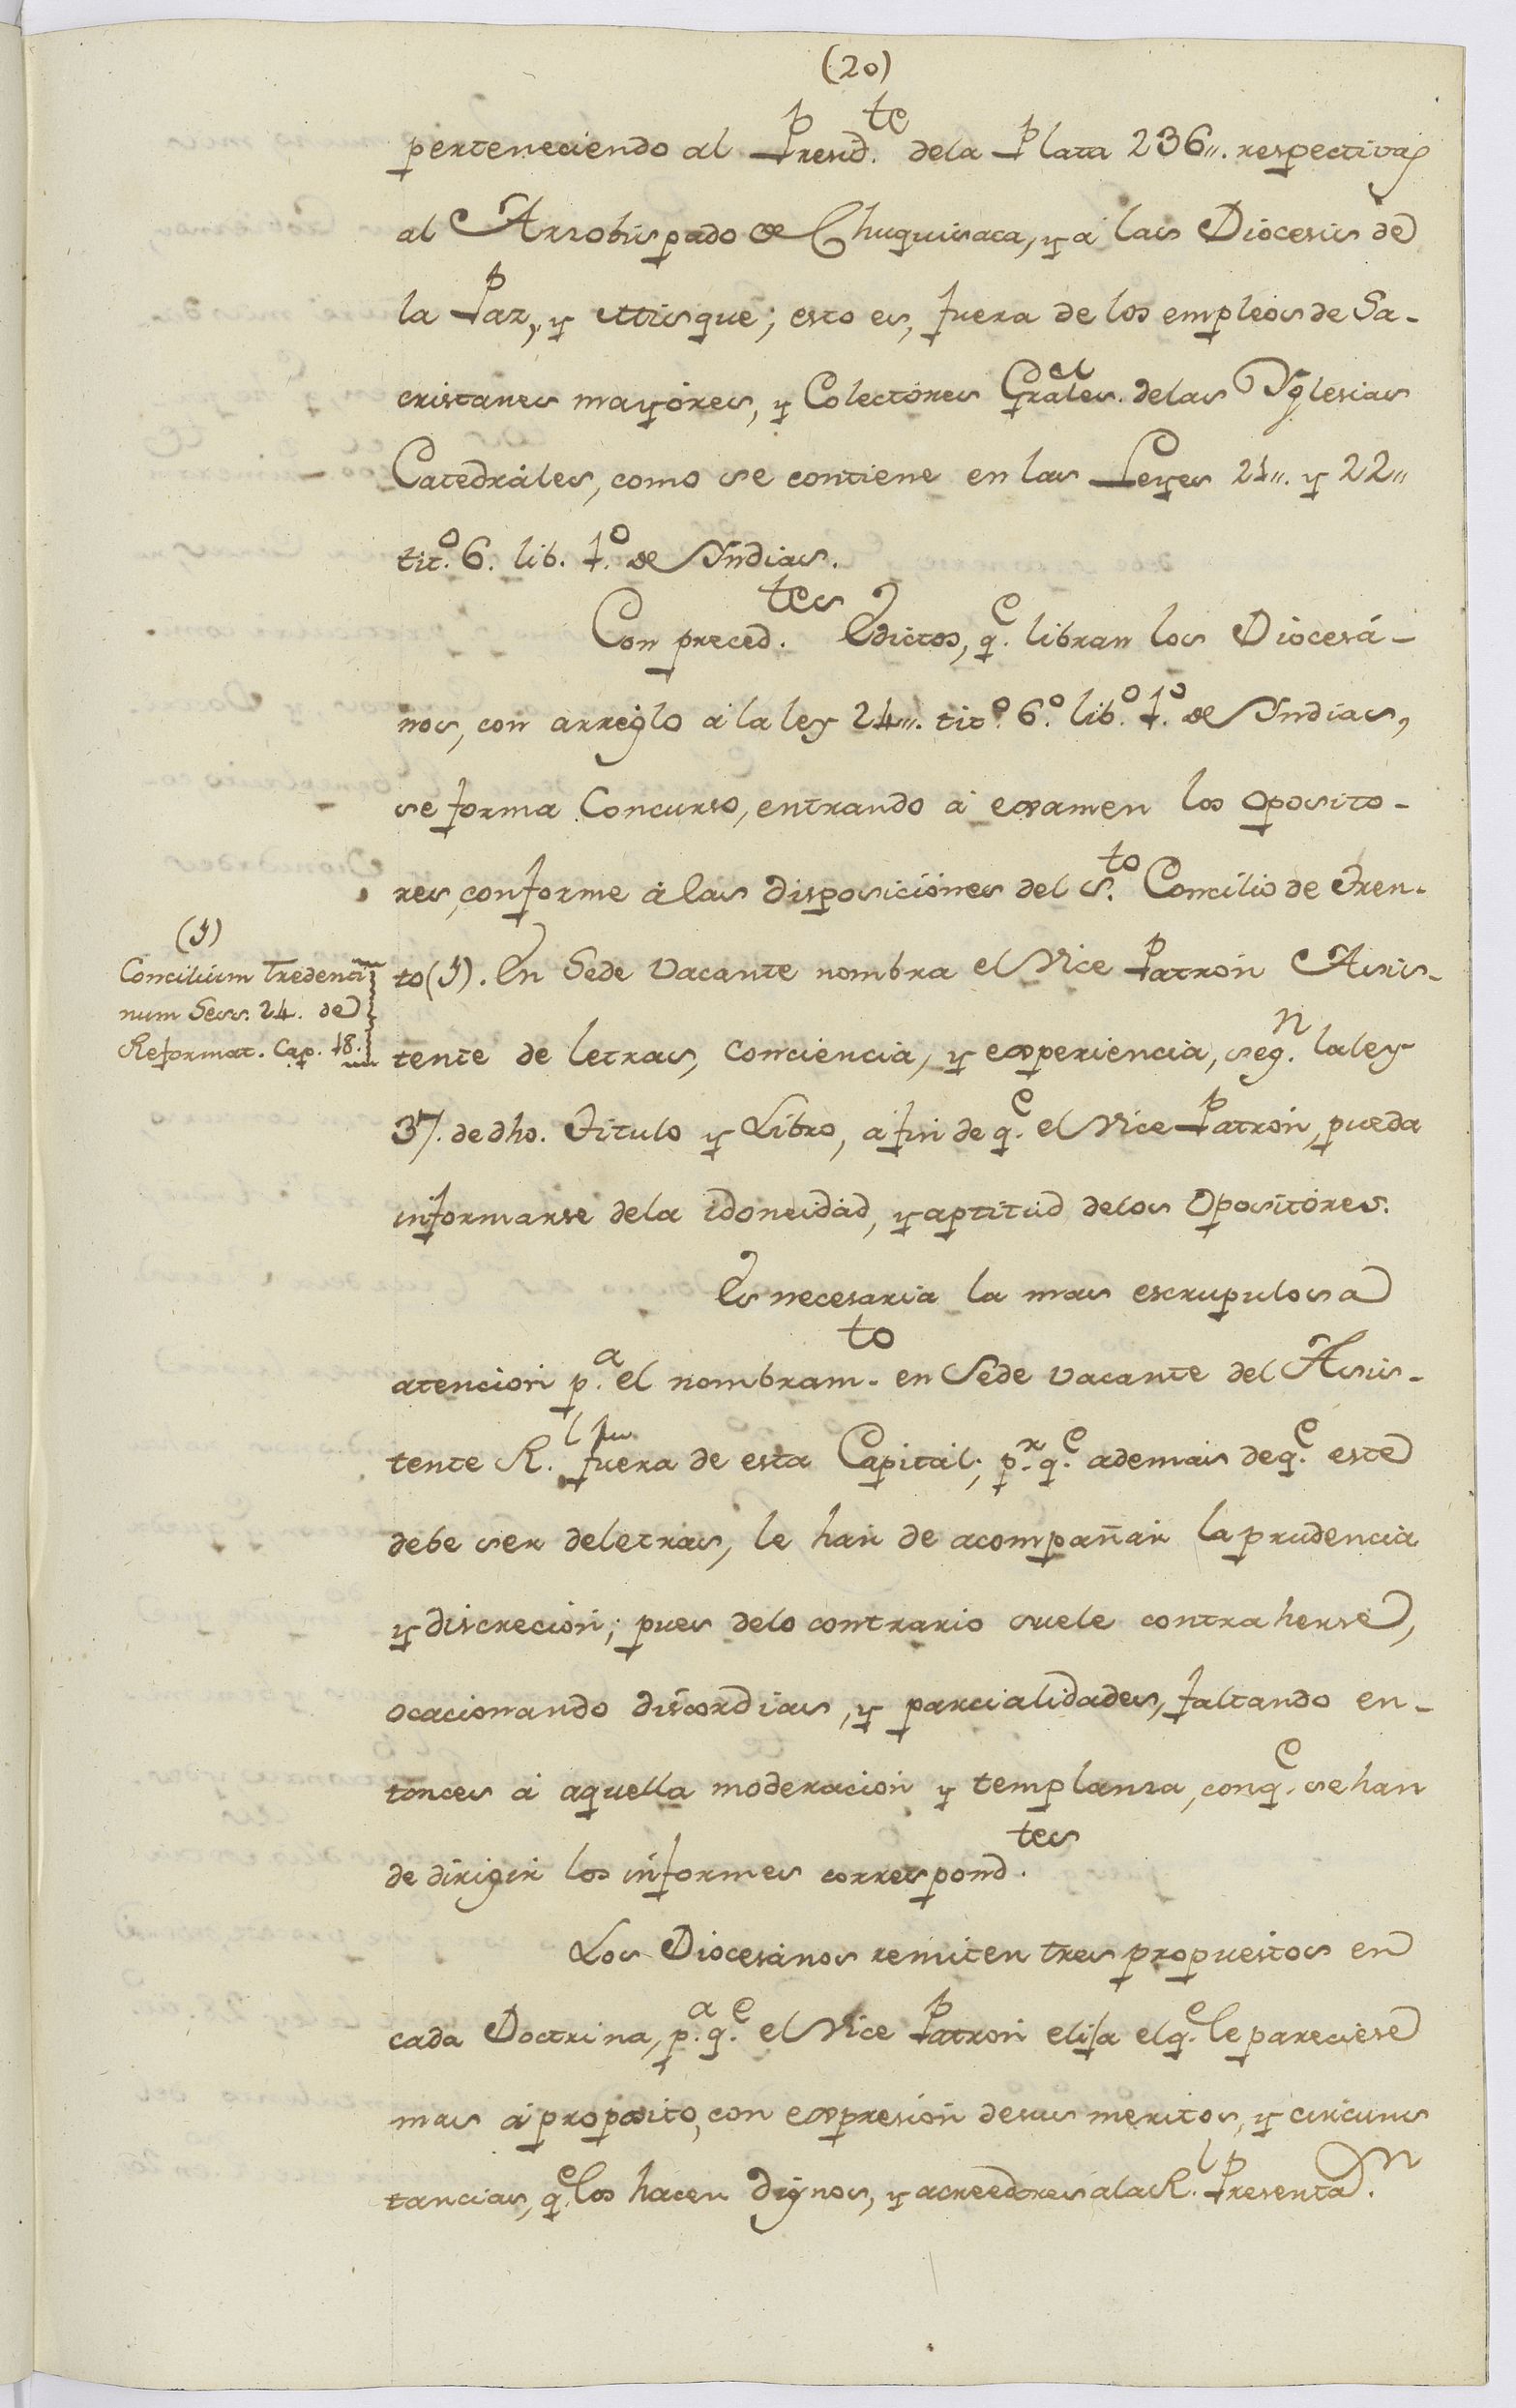 (20)
perteneciendo al Presid.te dela Plata 236,,. respectivas
al Arzobispado de Chuquisaca, y a las Diocesis de
la Paz, y Misque; esto es, fuera de los empleos de Sa-
cristanes mayóres, y Colectóres Gralesel. delas Yglesias
Catedráles, como se contiene en las Leyes 21,,. y 22,,
tit.o 6. lib. 1.o de Yndias.
Con preced.tes Edictos, q.e libran los Diocesá-
nos, con arreglo á la ley 24,,. tit.o 6.o lib.o 1.o de Yndias,
se forma Concurso, entrando á examen los oposito-
res, conforme á las disposiciónes del S.to Concilio de Tren-
to (1). En Sede Vacante nombra el Vice Patrón Asis-
tente de letras, conciencia, y experiencia, seg.n la ley
37. de dho. Titulo y Libro, á fin de q.e el Vice Patrón, pueda
informarse dela idoneidád, y aptitúd delos Opositóres.
Es necesaria la mas escrupulosa
atención p.a el nombram.to en Sede vacante del Asis-
tente R.l fuera de esta Capitál; p.r q.e ademas de q.e este
debe ser deletras, le han de acompañar la prudencia
y discreción; pues delo contrario suele contraherse,
ocacionando discordias, y parcialidades, faltando en-
tonces á aquella moderación y templanza, conq.e se han
de dirigir los informes correspond.tes
Los Diocesános remiten tres propuestos en
cada Doctrina, p.a q.e el Vice Patrón elija el q.e le pareciese
mas á propósito, con expresión desus meritos, y circuns
tancias, q.e los hacen dignos, y acreedores ala R.l Presenta.n
(1)
Concilium Tredenti
num Sess. 24. de
Reformat. Cap. 18.